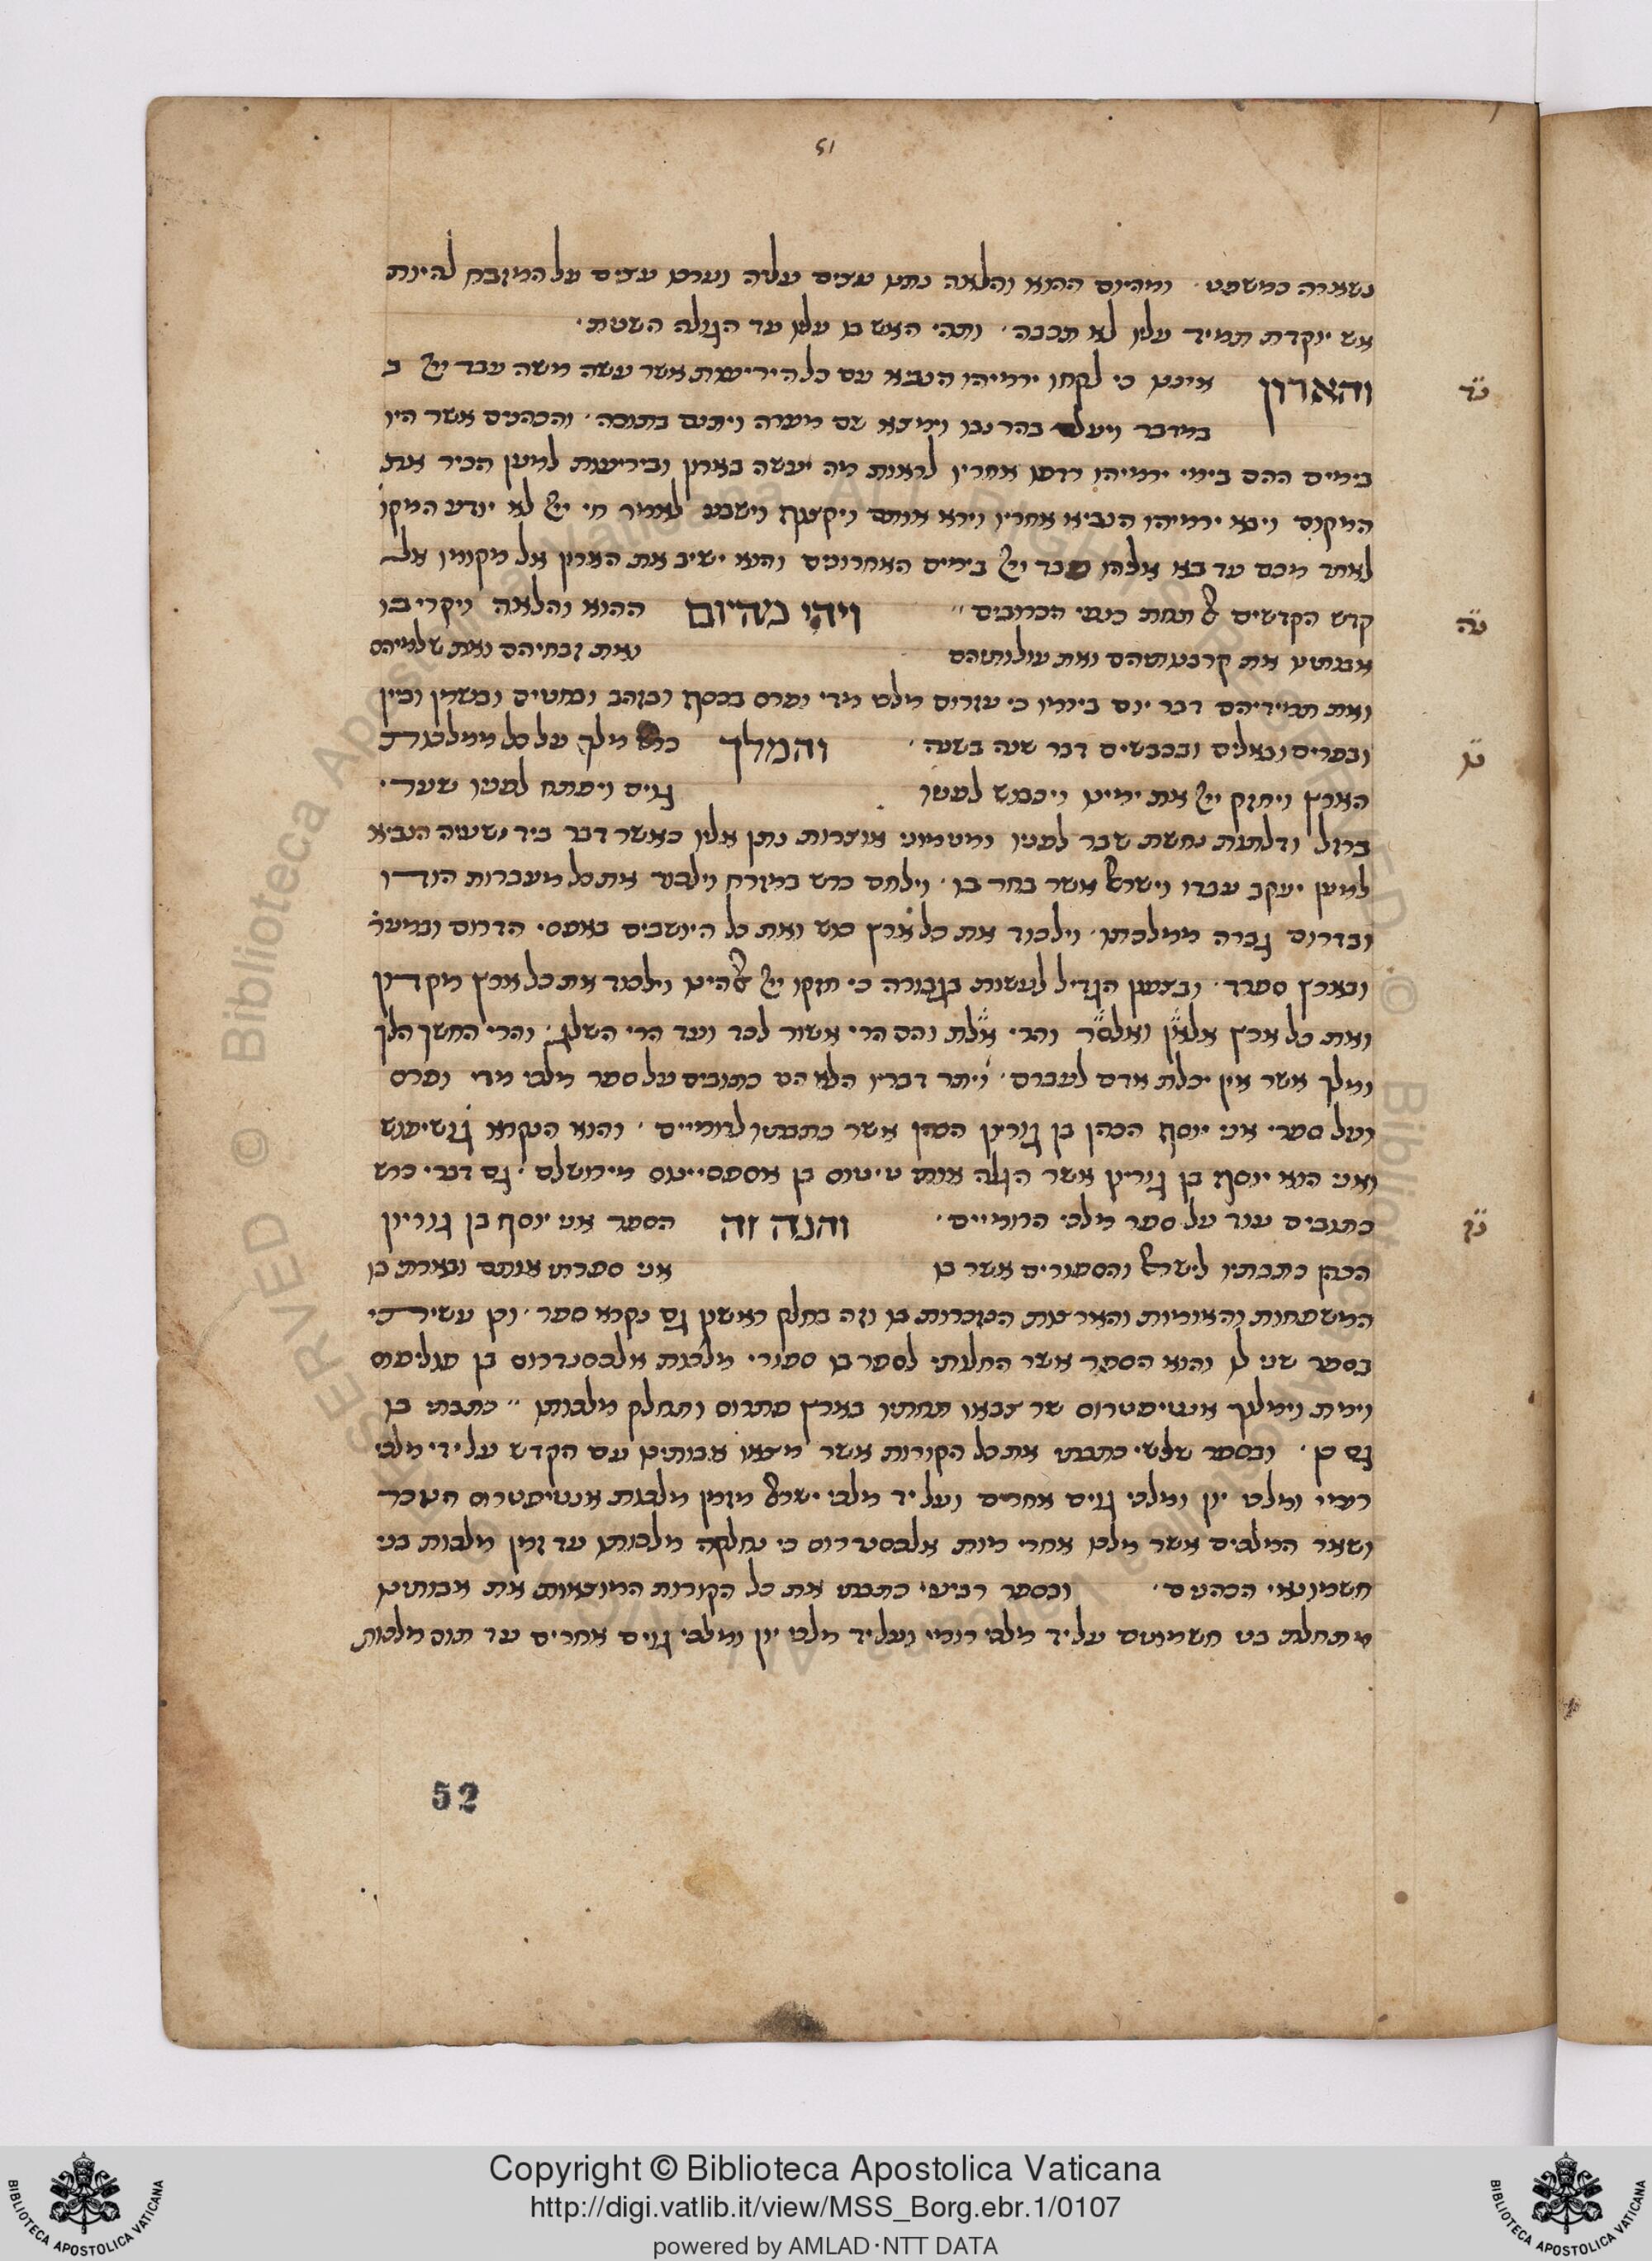 51
נשארה כמשפט ומהיום ההוא והלאה נתנו עצים עליה וערכו עצים על המזבח להיות
אש יוקדת תמיד עליו לא תכבה ותהי האש בו עליו עד הגולה השנית
והארון איננו כי לקחו ירמיהו הנביא עם כל היריעות אשר עשה משה עבד ייי ב
במדבר ויעלם בהר נבו וימצא שם מערה ויתנם בתוכה והכהנים אשר היו
בימים ההם בימי ירמיהו רדפו אחריו לראות מה יעשה בארון וביריעות למען הכיר את
המקום וירא ירמיהו הנביא אחריו וירא אותם ויקצוף וישבע לאמר חי ייי לא יודע המקו
קדש הקדשים אל תחת כנפי הכרובים ויהי מהיום ההוא והלאה ויקריבו
אבותינו את קרבנותיהם ואת עולותיהם ואת זבחיהם ואת שלמיהם
ואת תמידיהם דבר יום ביומו כי עזרום מלכי מדי ופרס בכסף ובזהב ובחטים ובשמן וביין
ובפרים ובאלים ובכבשים דבר שנה בשנה והמלך כרש מלך על כל ממלכות
הארץ ויחזק ייי את ימינו ויכבוש לפניו גוים ויפתח לפניו שערי
ברזל ודלתות נחשת שבר לפניו ומטמוני אוצרות נתן אליו כאשר דבר ביד ישעיה הנביא
למען יעקב עבדו וישראל אשר בחר בו וילחם כרש במזרח וילכוד את כל מעברות הודו
ובדרום גברה ממלכתו וילכוד את כל ארץ כוש ואת כל היושבים באפסי הדרום ובמער
ובארץ ספרד ובצפון הגדיל לעשות בגבורה כי חזקו ייי אלהינו וילכוד את כל ארץ מקדון
ואת כל ארץ אלאן ואלסר והרי אילת והם הרי אשור לכד ועד הרי השלג והרי החשך הלך
ומלך אשר אין יכלת אדם לעברם ויתר דבריו הלא הם כתובים על ספר מלכי מדי ופרס
ועל ספרי אני יוסף הכהן בן גוריון הכהן אשר כתבתיו לרומיים והוא הנקרא
ואני הוא יוסף בן גוריון אשר הגלה אותו טיטוס בן אספסיינוס מירושלם גם דברי כרש
כתובים עוד על ספר מלכי הרומיים והנה זה הספר אני יוסף בן גוריון
הכהן כתבתיו לישראל והספורים אשר בו אני ספרתי אותם ובארת כן
המשפחות והאומות והארצות הנזכרות בו וזה בחלק ראשון גם נקרא ספר וכן עשיתי
בספר שני לו והוא הספר אשר החלותי לספר בו ספורי מלכות אלכסנדרוס בן פוליפוס
וימת וימלוך אנטיפטרוס שר צבאו תחתיו בארץ פתרוס ותחלק מלכותו כתבתי בו
גם כן ובספר שלשי כתבתי את כל הקורות אשר מצאו אבותינו עם הקדש על ידי מלכי
רומי ומלכי יון ומלכי גוים אחרים ועל יד מלכי ישראל מזמן מלכות אנטיפטרוס הנזכר
ושאר המלכים אשר מלכו אחרי מות אלכסנדרוס כי נחלקה מלכותו עד זמן מלכות בני
חשמונאי הכהנים ובספר רביעי כתבתי את כל הקורות המוצאות את אבותינו
מתחלת בני חשמונים על יד מלכי רומי ועל יד מלכי יון ומלכי גוים אחרים עד תום מלכות
52
Copyright © Biblioteca Apostolica Vaticana
http://digi.vatlib.it/view/MSS_Borg.ebr.1/0107
powered by AMLAD·NTT DATA